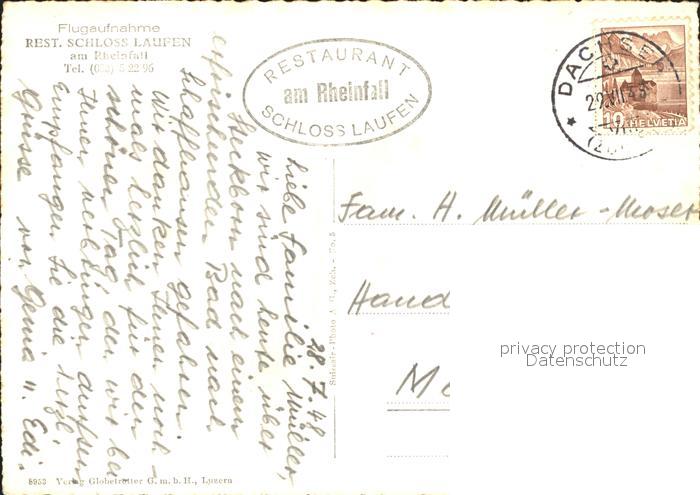 Flugaufnahme
REST. SCHLOSS LAUFEN
am Rheinfall
Tel. (053) 5 22 96
RESTAURANT
am Rheinfall
SCHLOSS LAUFEN
DACHSEN
HELVETIA
10
Fam. H. Müller-Moser
Hand
28.7.48
Liebe Familie Müller,
wir sind heute über
Steckborn nach einem
erfrischenden Bad nach
Schaffhausen gefahren.
Wir danken Ihnen noch-
mals herzlich für den
schönen Tag den wir bei
Ihnen verbringen durften
Empfangen Sie die herzl.
Grüsse von Genia u. Edi.
8953 Verlag Globetrotter G. m. b. H., Luzern
privacy protection
Datenschutz